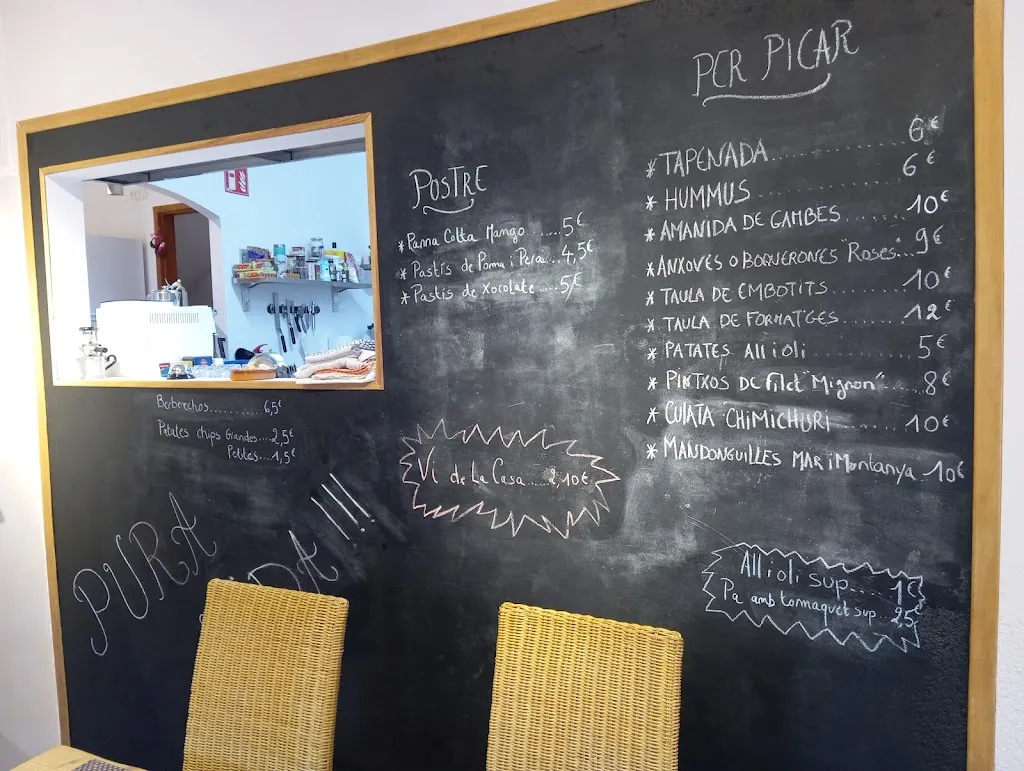 PER PICAR
* TAPENADA.......... 6€
* HUMMUS .......... 6€
* AMANIDA DE GAMBES ....... 10€
* ANXOVES O BOQUERONES "Roses"... 9€
* TAULA DE EMBOTITS .......... 10€
* TAULA DE FORMATGES .......... 12€
* PATATES All i oli .......... 5€
* PINTXOS DE Filet "Mignon"..... 8€
* CULATA "CHIMICHURI ....... 10€
* MANDONGUILLES MAR i Muntanya 10€
All i oli sup.... 1€
Pa amb tomaquet sup... 2,5€
POSTRE
* Panna Cotta Mango ...... 5€
* Pastís de Poma i Pera... 4,5€
* Pastís de Xocolate .... 5€
Vi de La Casa..... 2,10€
Berberechos.......... 6,5€
Patates chips Grandes.... 2,5€
Petites.... 1,5€
PURA
!!!!